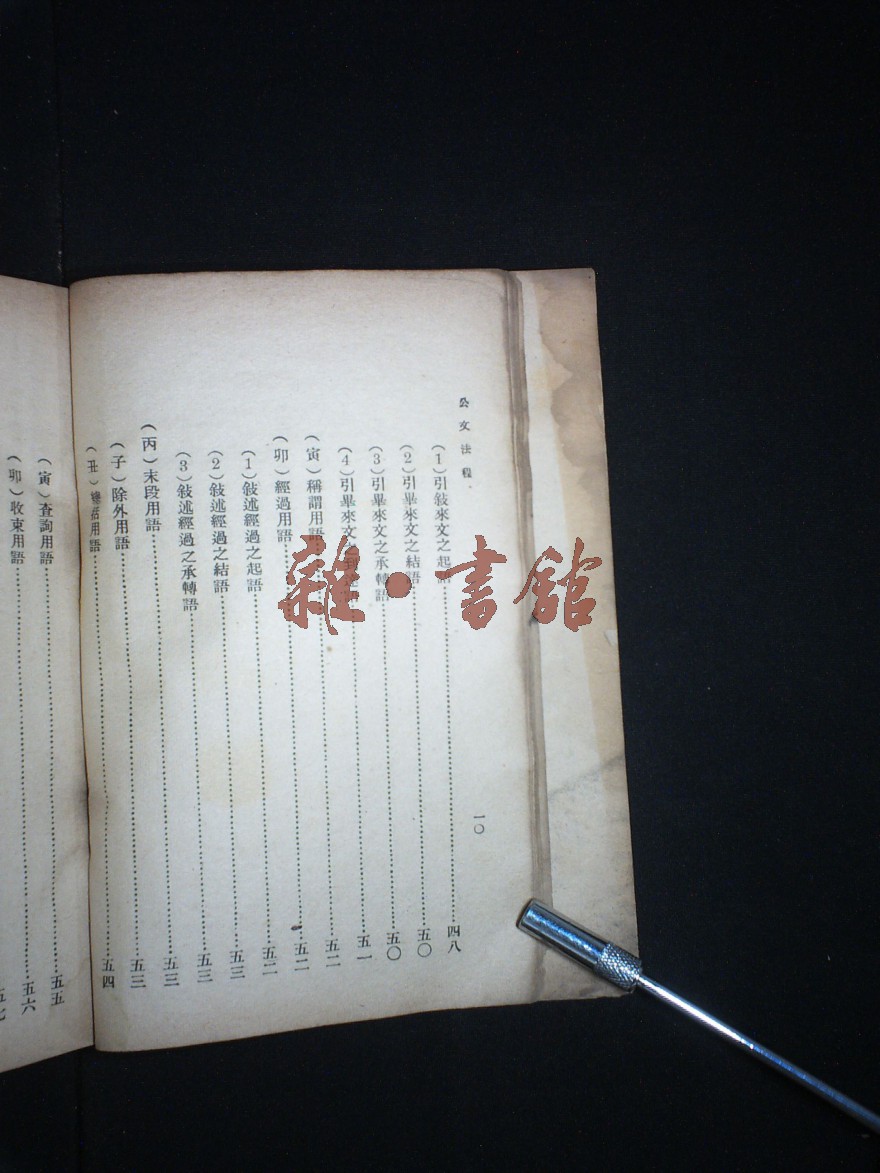 公文法程
一〇
(1)引敍來文之起語…………四八
(2)引畢來文之結語…………五〇
(3)引畢來文之承轉語…………五〇
(4)引畢來文…………五一
(寅)稱謂用語…………五二
(卯)經過用語…………五二
(1)敍述經過之起語…………五二
(2)敍述經過之結語…………五三
(3)敍述經過之承轉語…………五三
(丙)末段用語…………五三
(子)除外用語…………五三
(丑)總括用語…………五四
(寅)查詢用語…………五五
(卯)收束用語…………五六
五七
雜·書館